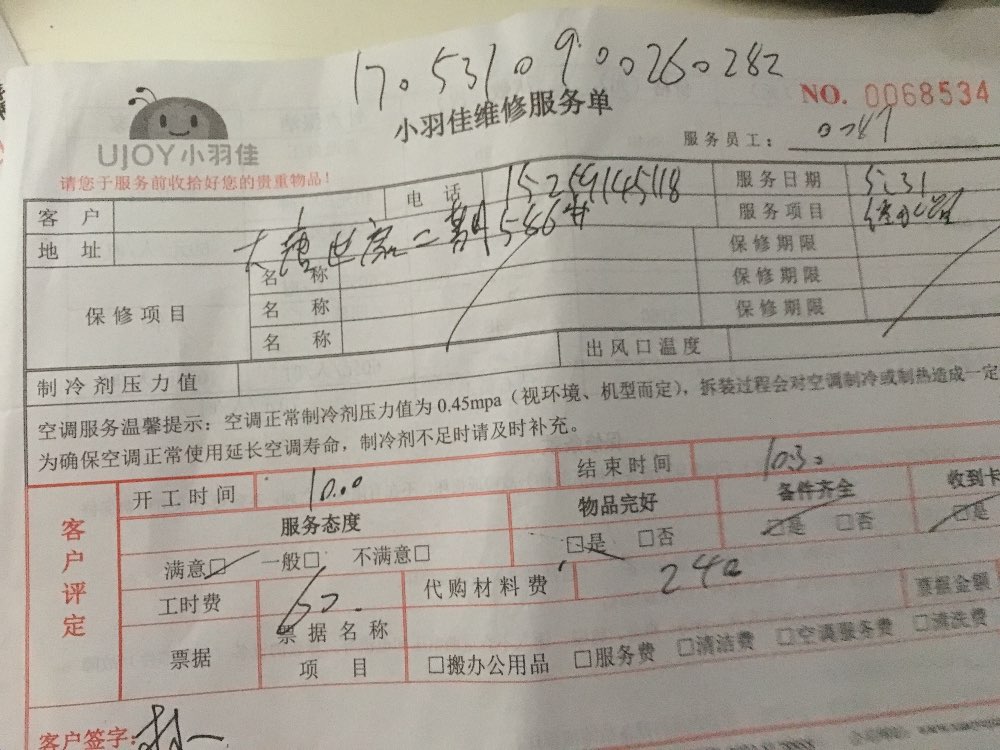 170531090026282
小羽佳维修服务单
NO. 0068534
UJOY小羽佳
服务员工：
请您于服务前收拾好您的贵重物品！
客户 电话 15259145118 服务日期 5.31
地址 大唐世家二期586# 服务项目
保修项目 名称 保修期限
名称 保修期限
名称 保修期限
制冷剂压力值 出风口温度
空调服务温馨提示：空调正常制冷剂压力值为 0.45mpa（视环境、机型而定），拆装过程会对空调制冷或制热造成一定
为确保空调正常使用延长空调寿命，制冷剂不足时请及时补充。
客户评定
开工时间 10.00 结束时间 10.30
服务态度 物品完好 备件齐全 收到卡
满意□ 一般□ 不满意□ □是 □否 □是 □否 □是
工时费 代购材料费 240 票据金额
票据 票据名称
项目 □搬办公用品 □服务费 □清洁费 □空调服务费 □清洗费
客户签字：